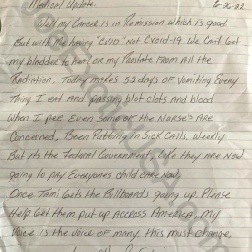 Medical Update.
Well my Cancer is in Remission which is good.
But with me having "CVID" Not Cvoid-19 We Can't Get
my bladder to hurt or my Prostate From All the
Radiation. Today makes 52 days of Vomiting Every
Thing I eat and passing blot clots and blood
When I pee Even some of the Nurse's Are
Concerned, Been Putting In Sick Calls, Weekly
But its the Federal Government, like they Are Now
going to pay Everyones child care Now,
Once Tami Gets the Billboards going up. Please
Help Get them put up ACCross America, My
Voice is the Voice of many, this must Change,